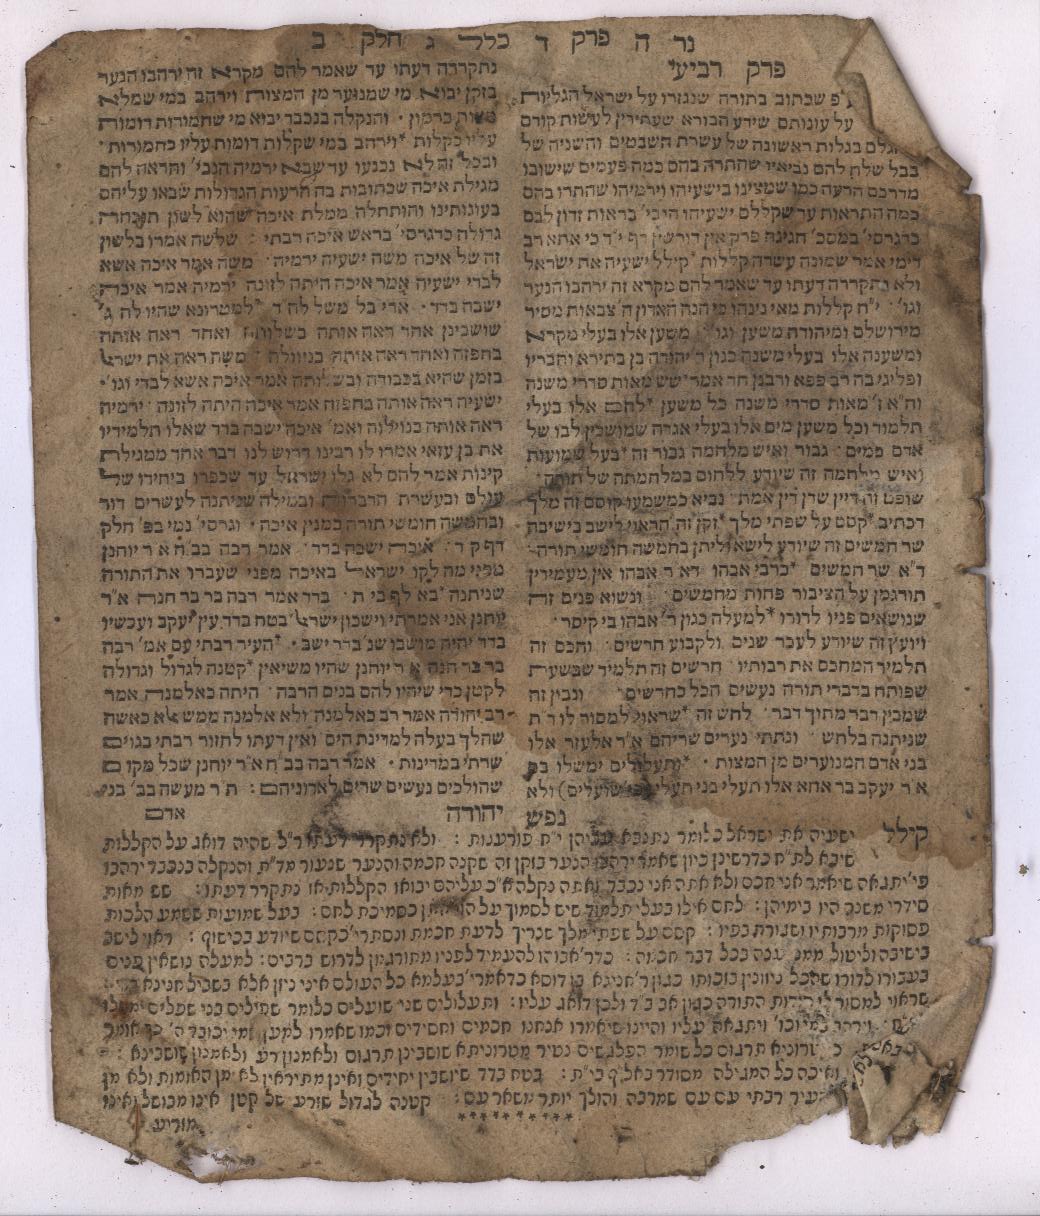 נר ה פרק ד כלל ג חלק ב
פרק רביעי
שכתוב בתורה שנגזרו על ישראל הגליות
על עונותם שידע הבורא שעתידין לעשות קודם
בגלות ראשונה של עשרת השבטים והשניה של
בבל שלח להם נביאיו שהתרה בהם כמה פעמים שישובו
מדרכם הרעה כמו שמצינו בישעיהו וירמיהו שהתרו בהם
כמה התראות עד שקללם ישעיהו בראות זדון לבם
כדגרסי' במסכ' חגיגה פרק אין דורשין דף י"ד כי אתא רב
דימי אמר שמונה עשרה קללות קילל ישעיה את ישראל
ולא נתקררה דעתו עד שאמר להם מקרא זה ירהבו הנער
וגו' י"ח קללות מאי נינהו כי הנה האדון ה' צבאות מסיר
מירושלם ומיהודה משען וגו' משען אלו בעלי מקרא
ומשענה אלו בעלי משנה כגון ר' יהודה בן בתירא וחבריו
ופליגי בה רב פפא ורבנן חד אמר שש מאות סדרי משנה
וח"א ז' מאות סדרי משנה כל משען לחם אלו בעלי
תלמוד וכל משען מים אלו בעלי אגדה שמושכין לבו של
אדם כמים גבור ואיש מלחמה גבור זה בעל שמועות
ואיש מלחמה זה שיודע ללחום במלחמתה של תורה
שופט זה דיין שדן דין אמת נביא כמשמעו קוסם זה מלך
דכתיב קסם על שפתי מלך זקן זה הראוי לישב בישיבה
שר חמשים זה שיודע לישא וליתן בחמשה חומשי תורה
ד"א שר חמשים כדרבי אבהו דא"ר אבהו אין מעמידין
תורגמן על הציבור פחות מחמשים ונשוא פנים זה
שנושאים פניו לדורו למעלה כגון ר' אבהו בי קיסר
ויועץ זה שיודע לעבר שנים ולקבוע חדשים וחכם זה
תלמיד המחכם את רבותיו חרשים זה תלמיד שבשעה
שפותח בדברי תורה נעשים הכל כחרשים ונבון זה
שמבין דבר מתוך דבר לחש זה שראוי למסור לו ד"ת
שניתנה בלחש ונתתי נערים שריהם א"ר אלעזר אלו
בני אדם המנוערים מן המצות ותעלולים ימשלו בם
א"ר יעקב בר אחא אלו תעלי בני תעלי ולא
נתקררה דעתו עד שאמר להם מקרא זה ירהבו הנער
בזקן יבוא מי שמנוער מן המצות וירהב במי שמלא
מצות כרמון והנקלה בנכבד יבוא מי שחמורות דומות
עליו כקלות וירהב במי שקלות דומות עליו כחמורות
ובכל זה לא נכנעו עד שבא ירמיה הנבי' והראה להם
מגילת איכה שכתובות בה הרעות הגדולות שבאו עליהם
בעונותינו והותחלה ממלת איכה שהוא לשון
גדולה כדגרסי' בראש איכה רבתי שלשה אמרו בלשון
זה של איכה משה ישעיה ירמיה משה אמר איכה אשא
לבדי ישעיה אמר איכה היתה לזונה ירמיה אמר איכה
ישבה בדד א"ר לוי משל למטרונא שהיו לה ג'
שושבינין אחד ראה אותה בשלוותה ואחד ראה אותה
בחפזה ואחד ראה אותה בניוולה משה ראה את ישראל
בזמן שהיא בכבודה ובשלותה אמר איכה אשא לבדי וגו'
ישעיה ראה אותה בחפזה אמר איכה היתה לזונה ירמיה
ראה אותה בנוילה ואמ' איכה ישבה בדד שאלו תלמידיו
את בן עזאי אמרו לו רבינו דרוש לנו דבר אחד ממגילת
קינות אמר להם לא גלו ישראל עד שכפרו ביחידו של
עולם ובעשרת הדברות ובמילה שניתנה לעשרים דור
ובחמשה חומשי תורה כמנין איכה וגרסי' נמי בפ' חלק
דף ק"ד איכה ישבה בדד אמר רבה בב"ח א"ר יוחנן
מפני מה לקו ישראל באיכה מפני שעברו את התורה
שניתנה בא לף בי"ת בדד אמר רבה בר בר חנה א"ר
יוחנן אני אמרתי וישכון ישר' בטח בדד עין יעקב ועכשיו
בדד יהיה מושבו שנ' בדד ישב העיר רבתי עם אמ' רבה
בר בר חנה א"ר יוחנן שהיו משיאין קטנה לגדול וגדולה
לקטן כדי שיהיו להם בנים הרבה היתה כאלמנה אמר
רב יהודה אמר רב כאלמנה ולא אלמנה ממש אלא כאשה
שהלך בעלה למדינת הים ואין דעתו לחזור רבתי בגוים
שרתי במדינות אמר רבה בב"ח א"ר יוחנן שכל מקום
שהולכים נעשים שרים לאדוניהם: ת"ר מעשה בב' בני
אדם
נפש יהודה
קילל ישעיה את ישראל כלומר נתנבא עליהן י"ח פורעניות: ולא נתקררה דעתו ר"ל שהיה דואג על הקללות
שיבא לת"ח כדרשינן כיון שאמר ירהבו הנער בזקן זה שקנה חכמה והנער שנעור מד"ת והנקלה בנכבד ירהבו
שיאמר אני חכם ולא אתה אני נכבד ואתה נקלה א"כ עליהם יבואו הקללות או נתקרר דעתו: שש מאות
סידרי משנה היו בימיהן: לחם אילו בעלי תלמוד שיש לסמוך על כסמיכת לחם: בעל שמועות ששמע הלכות
פסוקות מרבותיו ושגורת בפיו: קסם על שפתי מלך שצריך לדעת חכמת ונסתרי' כקסם שיודע בכישוף: ראוי לישב
בישיבה וליטול ממנו עצה בכל דבר חכמה: כדר' אבוהו להעמיד לפניו מתורגמן לדרוש ברבים: למעלה נושאין פנים
בעבורו לדורו שהכל ניזונין בזכותו כגון ר' חנינא בן דוסא כדאמרי' בעלמא כל העולם אינו ניזון אלא בשביל חנינא
שראוי למסור לו סודות התורה כגון אב ב"ד ולבו דואג עליו: ותעלולים שני שועלים כלומר שפילים בני שפלים ימשלו
וירהב במי וכו' ויתגאה עליו והיינו שיאמרו אנחנו חכמים וחסידים וכמו שאמרו למען יכובד ה' כך אומר
מטרוניא תרגום כל שומר הפלגשים נטיר מטרוניתא שושבינן תרגום ולאמנון רע ולאמנון שושבינא:
ואיכה כל המגילה מסודר באלף בי"ת: בטח בדד שיושבין יחידים ואינן מתיראין לא מן האומות ולא מן
העיר רבתי עם עם שמרבה והולך יותר משאר עם: קטנה לגדול שזרע של קטן אינו מבושל ואינו
מזריע